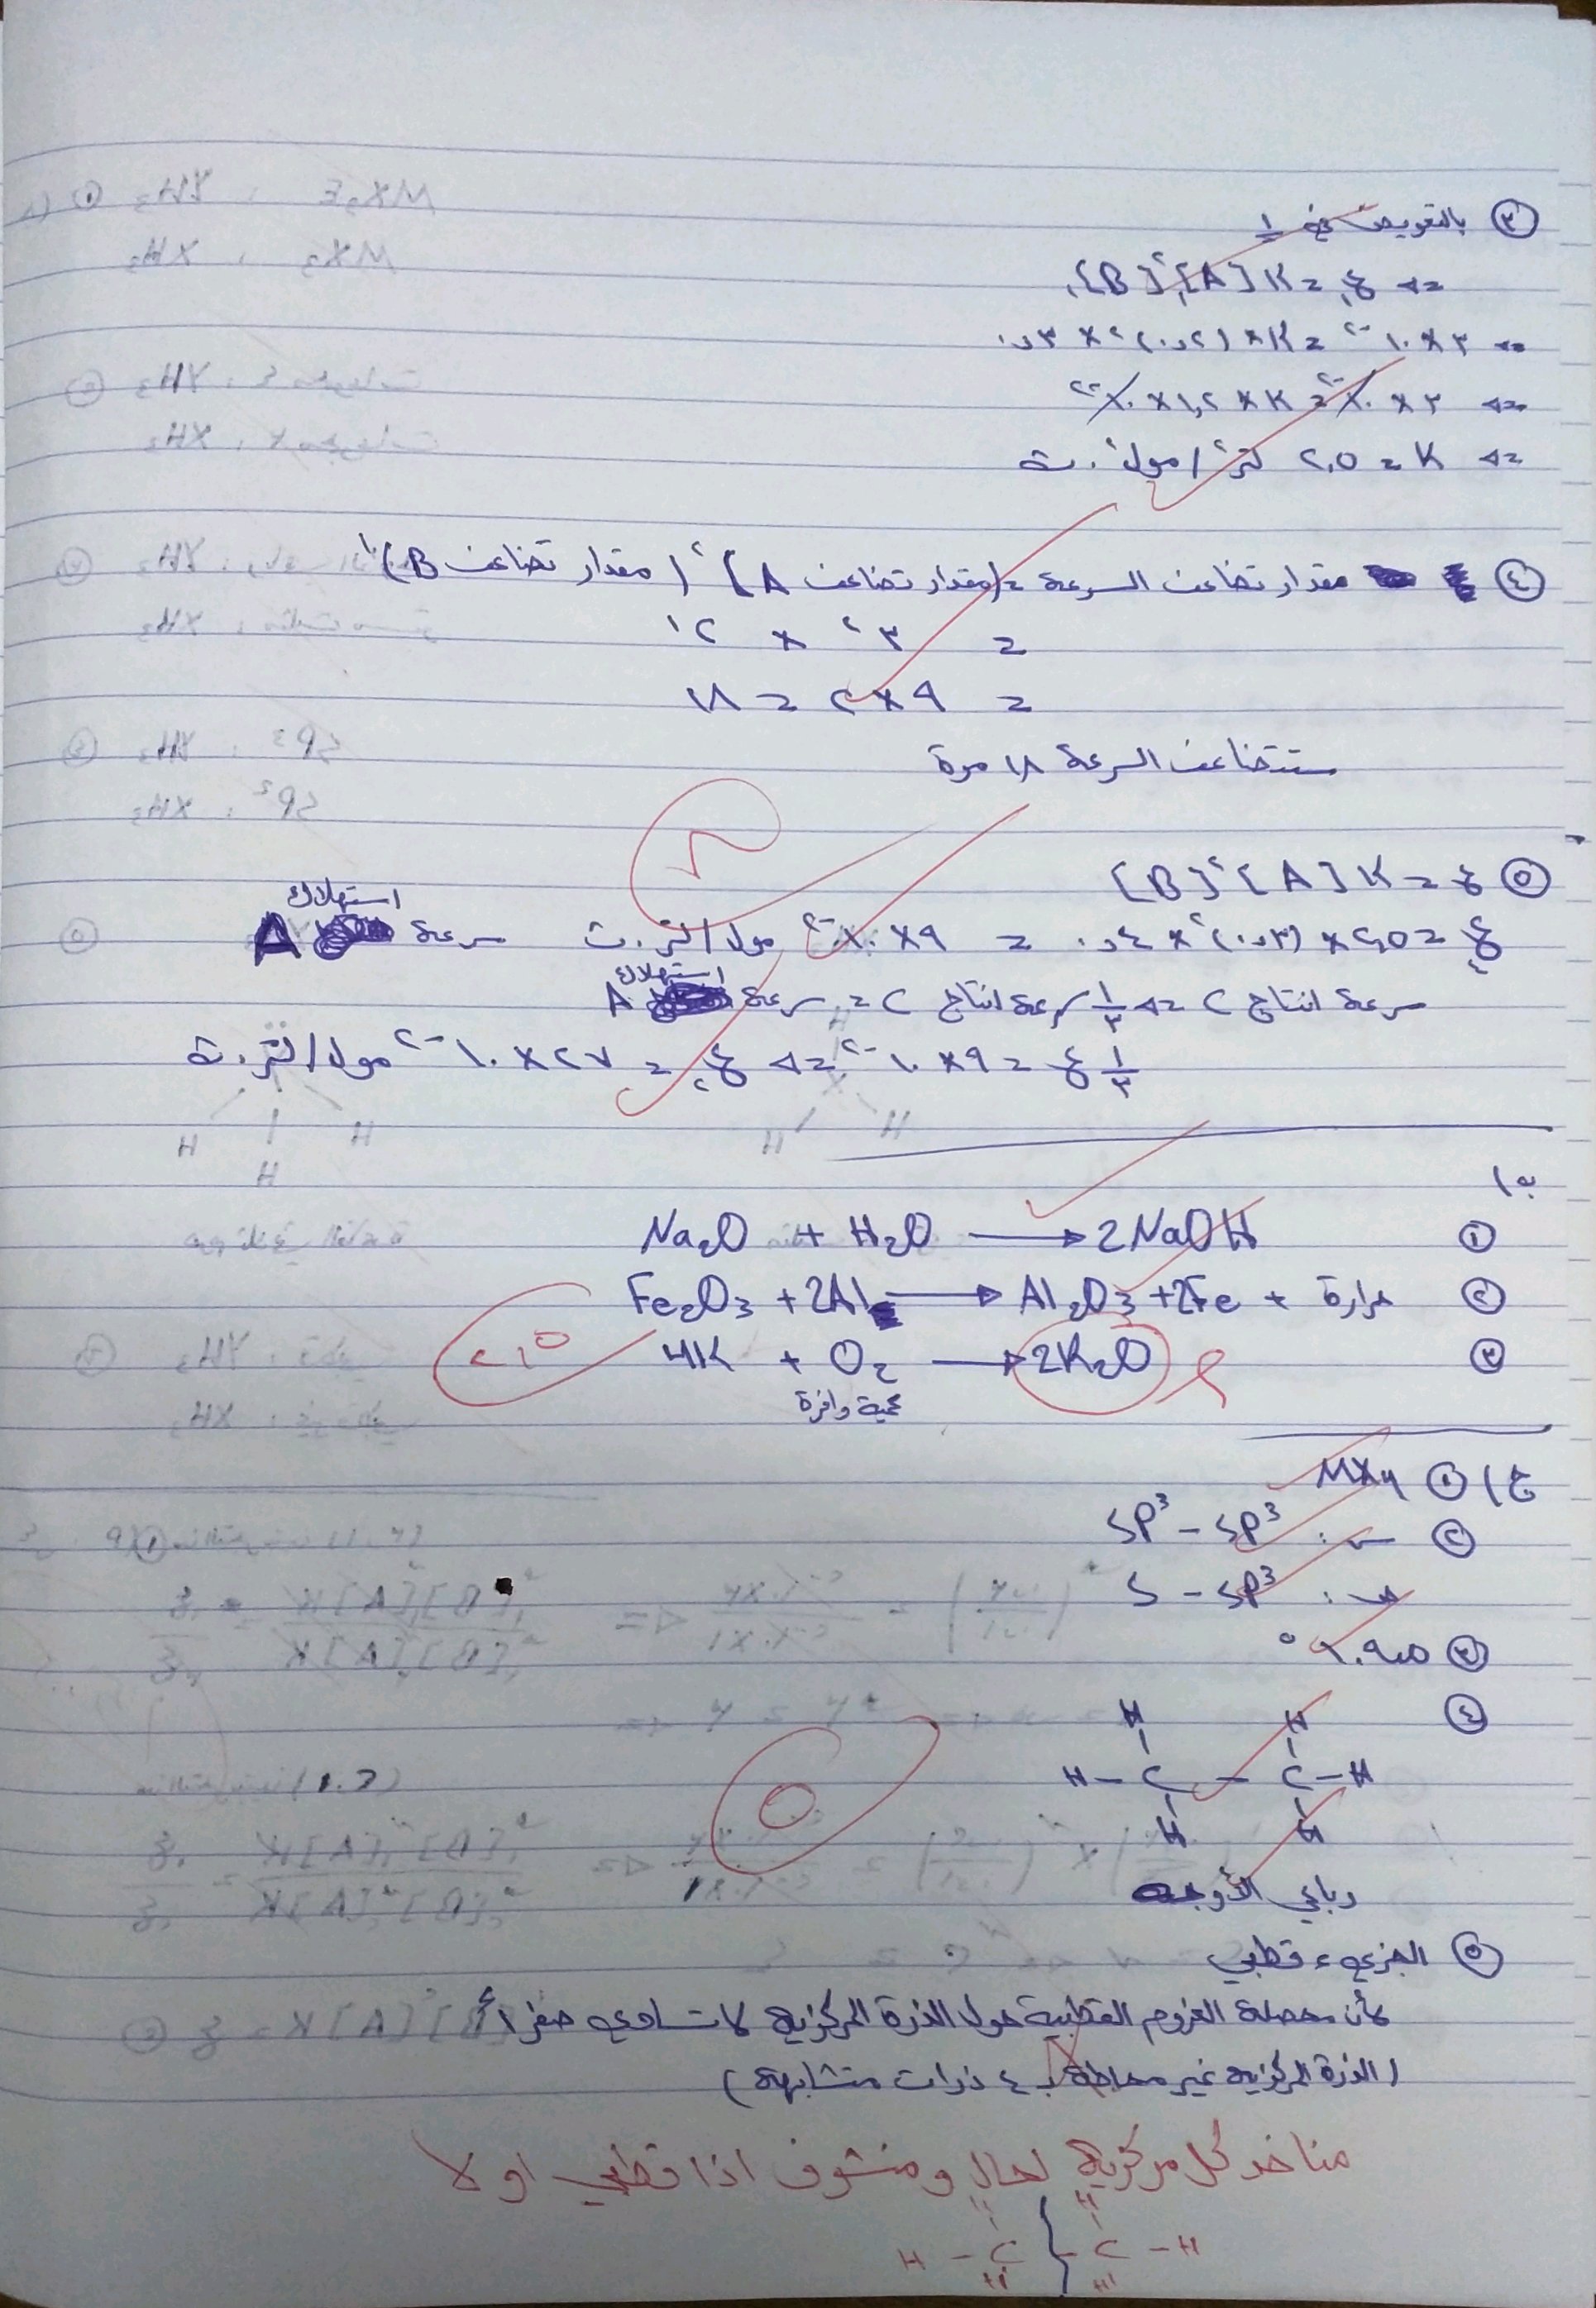 ③ بالتعويض في ١
⇐ ع١ = K [A]١² [B]١
⇐ ٣ × ١٠⁻² = K × (٠,٢)² × ٠,٣
⇐ ٣ × ١٠⁻² = K × ١,٢ × ١٠⁻²
⇐ K = ٢,٥ لتر² / مول² . ث
④ مقدار تضاعف السرعة = (مقدار تضاعف A)² (مقدار تضاعف B)¹
= ٣² × ٢¹
= ٩ × ٢ = ١٨
ستتضاعف السرعة ١٨ مرة
⑤ ع = K [A]² [B]
ع٤ = ٢,٥ × (٠,٣)² × ٠,٤ = ٩ × ١٠⁻² مول/لتر.ث سرعة استهلاك A
سرعة انتاج C ⇐ ١/٣ سرعة انتاج C = سرعة استهلاك A
١/٣ ع = ٩ × ١٠⁻² ⇐ ع = ٢٧ × ١٠⁻² مول/لتر.ث
ب)
① Na₂O + H₂O → 2NaOH
② Fe₂O₃ + 2Al → Al₂O₃ + 2Fe + حرارة
٢,٥
③ 4K + O₂ → 2K₂O
كمية وافرة
ج) ① MX₄
② س: SP³ - SP³
ص: S - SP³
③ ١٠٩,٥°
④ H H
H - C - C - H
H H
رباعي الأوجه
⑤ الجزيء قطبي
لأن محصلة العزوم القطبية حول الذرة المركزية لا تساوي صفراً
(الذرة المركزية غير محاطة بـ ٤ ذرات متشابهة)
مناخد كل مركزية لحال ومنشوف اذا قطبي او لا
H H
H - C } - C - H
H H